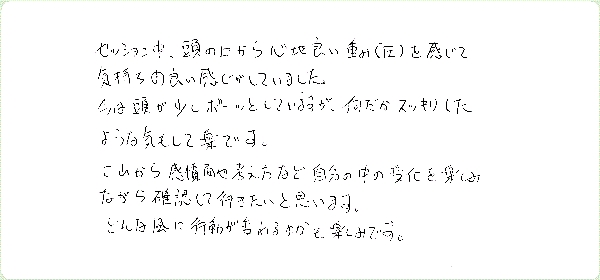 セッション中、頭の上から心地良い重み(圧)を感じて
気持ちの良い感じがしていました。
今は頭が少しボーッとしているが、何だかスッキリした
ような気もして楽です。
これから感情面や考え方など自分の中の変化を楽しみ
ながら確認して行きたいと思います。
どんな風に行動が変わるのかも楽しみです。